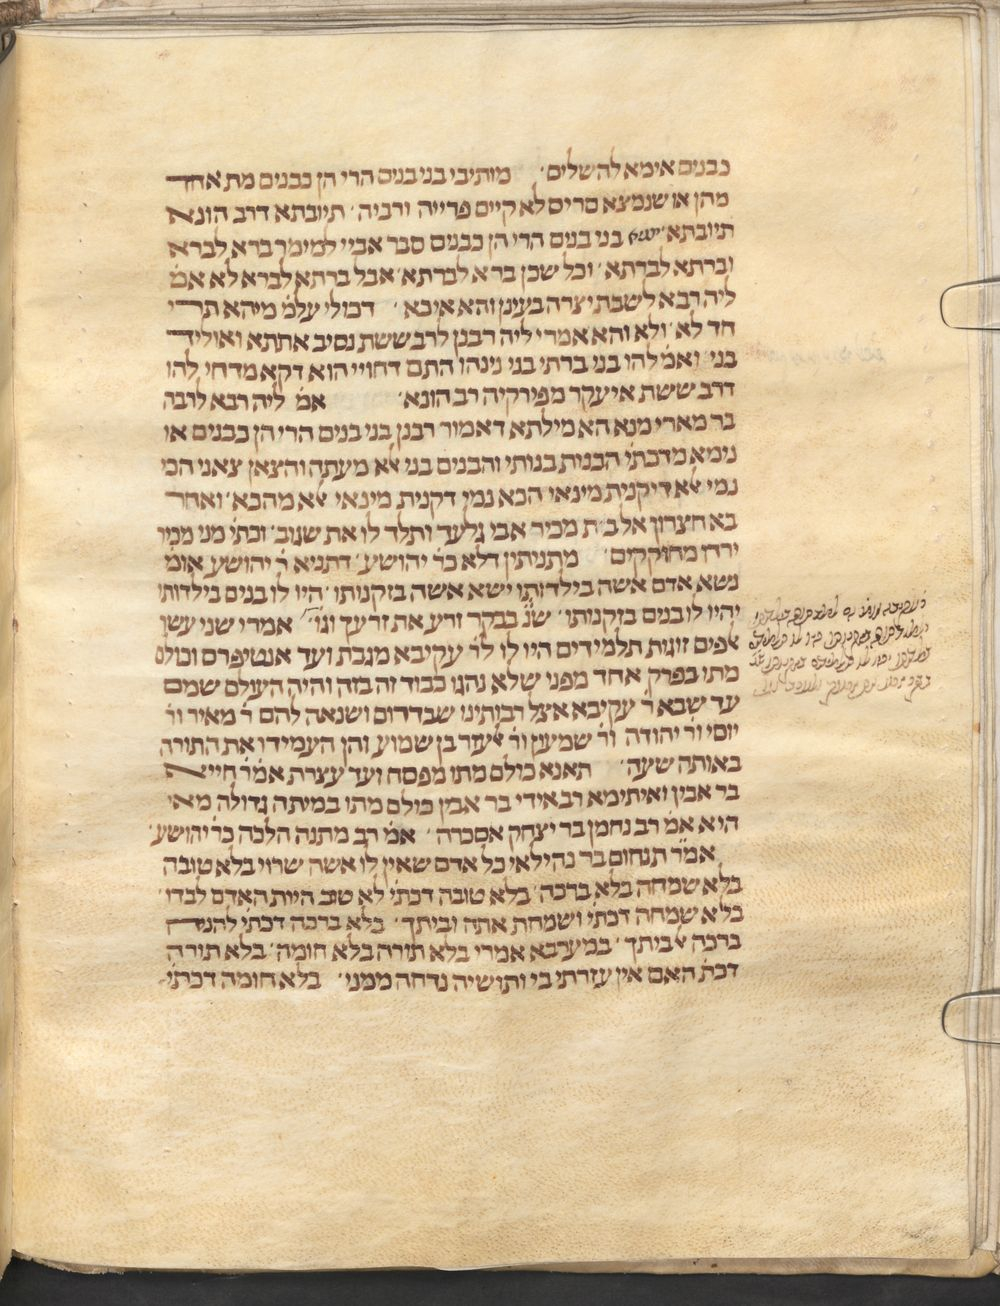 כבנים אימא להשלים׳ מותיבי בני בנים הרי הן כבנים מת אחד
מהן או שנמצא סריס לא קיים פרייה ורביה׳ תיובתא דרב הונא
תיובתא׳ בני בנים הרי הן כבנים סבר אביי למימר ברא לברא
וברתא לברתא׳ וכל שכן ברא לברתא׳ אבל ברתא לברא לא אמ׳
ליה רבא לשבת יצרה בעינן והא איכא׳ דכולי עלמ׳ מיהא תרי
חד לא׳ ולא והא אמרי ליה רבנן לרב ששת נסיב אתתא ואוליד
בני׳ ואמ׳ להו בני ברתי בני נינהו התם דחויי הוא דקא מדחי להו
דרב ששת איעקר מפירקיה רב הונא׳ אמ׳ ליה רבא לרבה
בר מארי מנא הא מילתא דאמור רבנן בני בנים הרי הן כבנים או
נימא מדכתי׳ הבנות בנותי והבנים בני אלא מעתה והצאן צאני הכי
נמי אלא דקנית מינאי הכא נמי דקנית מינאי אלא מהכא׳ ואחר
בא חצרון אל בת מכיר אבי גלעד ותלד לו את שגוב׳ וכתי׳ מני מכיר
ירדו מחוקקים׳ מתניתין דלא כר׳ יהושע׳ דתניא ר׳ יהושע אומ׳
נשא אדם אשה בילדותו ישא אשה בזקנותו׳ היו לו בנים בילדותו
יהיו לו בנים בזקנותו׳ שנ׳ בבקר זרע את זרעך וגו׳ אמרי שני עשר
אלפים זוגות תלמידים היו לו לר׳ עקיבא מגבת ועד אנטיפרס וכולם
מתו בפרק אחד מפני שלא נהגו כבוד זה בזה והיה העולם שמם
עד שבא ר׳ עקיבא אצל רבותינו שבדרום ושנאה להם ר׳ מאיר ור׳
יוסי ור׳ יהודה ור׳ שמעון ור׳ אלעזר בן שמוע והן העמידו את התורה
באותה שעה׳ תאנא כולם מתו מפסח ועד עצרת אמ׳ ר׳ חייא
בר אבין ואיתימא רב אידי בר אבין כולם מתו במיתה גדולה מאי
היא אמ׳ רב נחמן בר יצחק אסכרה׳ אמ׳ רב מתנה הלכה כר׳ יהושע׳
אמ׳ ר׳ תנחום בר נהילאי כל אדם שאין לו אשה שרוי בלא טובה
בלא שמחה בלא ברכה׳ בלא טובה דכתי׳ לא טוב היות האדם לבדו׳
בלא שמחה דכתי׳ ושמחת אתה וביתך׳ בלא ברכה דכתי׳ להניח
ברכה אל ביתך׳ במערבא אמרי בלא תורה בלא חומה׳ בלא תורה
דכת׳ האם אין עזרתי בי ותושיה נדחה ממני׳ בלא חומה דכתי׳